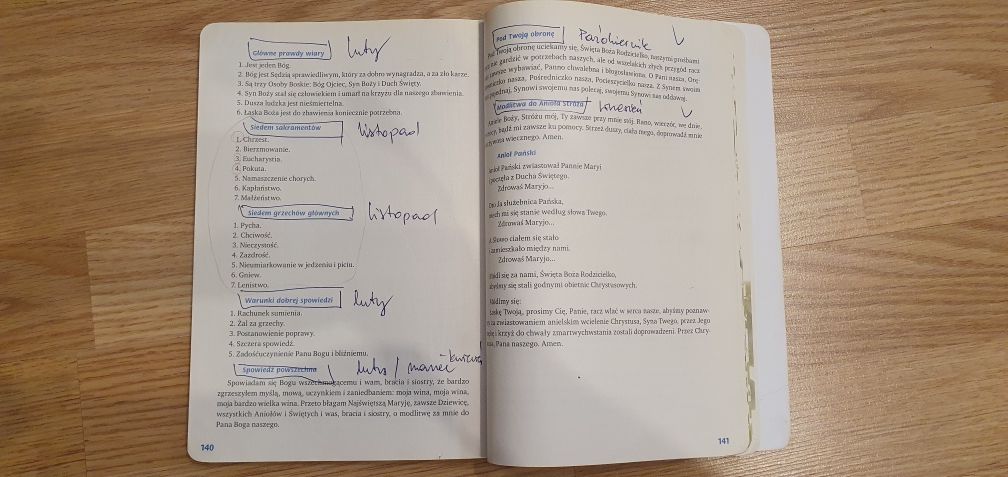 Główne prawdy wiary luty
1. Jest jeden Bóg.
2. Bóg jest Sędzią sprawiedliwym, który za dobro wynagradza, a za zło karze.
3. Są trzy Osoby Boskie: Bóg Ojciec, Syn Boży i Duch Święty.
4. Syn Boży stał się człowiekiem i umarł na krzyżu dla naszego zbawienia.
5. Dusza ludzka jest nieśmiertelna.
6. Łaska Boża jest do zbawienia koniecznie potrzebna.
Siedem sakramentów listopad
1. Chrzest.
2. Bierzmowanie.
3. Eucharystia.
4. Pokuta.
5. Namaszczenie chorych.
6. Kapłaństwo.
7. Małżeństwo.
Siedem grzechów głównych listopad
1. Pycha.
2. Chciwość.
3. Nieczystość.
4. Zazdrość.
5. Nieumiarkowanie w jedzeniu i piciu.
6. Gniew.
7. Lenistwo.
Warunki dobrej spowiedzi luty
1. Rachunek sumienia.
2. Żal za grzechy.
3. Postanowienie poprawy.
4. Szczera spowiedź.
5. Zadośćuczynienie Panu Bogu i bliźniemu.
Spowiedź powszechna luty / marzec -
Spowiadam się Bogu wszechmogącemu i wam, bracia i siostry, że bardzo
zgrzeszyłem myślą, mową, uczynkiem i zaniedbaniem: moja wina, moja wina,
moja bardzo wielka wina. Przeto błagam Najświętszą Maryję, zawsze Dziewicę,
wszystkich Aniołów i Świętych i was, bracia i siostry, o modlitwę za mnie do
Pana Boga naszego.
140
Pod Twoją obronę Październik
Pod Twoją obronę uciekamy się, Święta Boża Rodzicielko, naszymi prośbami
nie gardzić w potrzebach naszych, ale od wszelakich złych przygód racz
zawsze wybawiać, Panno chwalebna i błogosławiona. O Pani nasza, Orę-
nasza, Pośredniczko nasza, Pocieszycielko nasza. Z Synem swoim
Synowi swojemu nas polecaj, swojemu Synowi nas oddawaj.
Modlitwa do Anioła Stróża wrzesień
Aniele Boży, Stróżu mój, Ty zawsze przy mnie stój. Rano, wieczór, we dnie,
bądź mi zawsze ku pomocy. Strzeż duszy, ciała mego, doprowadź mnie
wiecznego. Amen.
Anioł Pański
Anioł Pański zwiastował Pannie Maryi
i poczęła z Ducha Świętego.
Zdrowaś Maryjo...
Oto Ja służebnica Pańska,
niech mi się stanie według słowa Twego.
Zdrowaś Maryjo...
A Słowo ciałem się stało
i zamieszkało między nami.
Zdrowaś Maryjo...
Módl się za nami, Święta Boża Rodzicielko,
abyśmy się stali godnymi obietnic Chrystusowych.
Módlmy się:
Łaskę Twoją, prosimy Cię, Panie, racz wlać w serca nasze, abyśmy poznaw-
szy za zwiastowaniem anielskim wcielenie Chrystusa, Syna Twego, przez Jego
mękę i krzyż do chwały zmartwychwstania zostali doprowadzeni. Przez Chry-
stusa, Pana naszego. Amen.
141